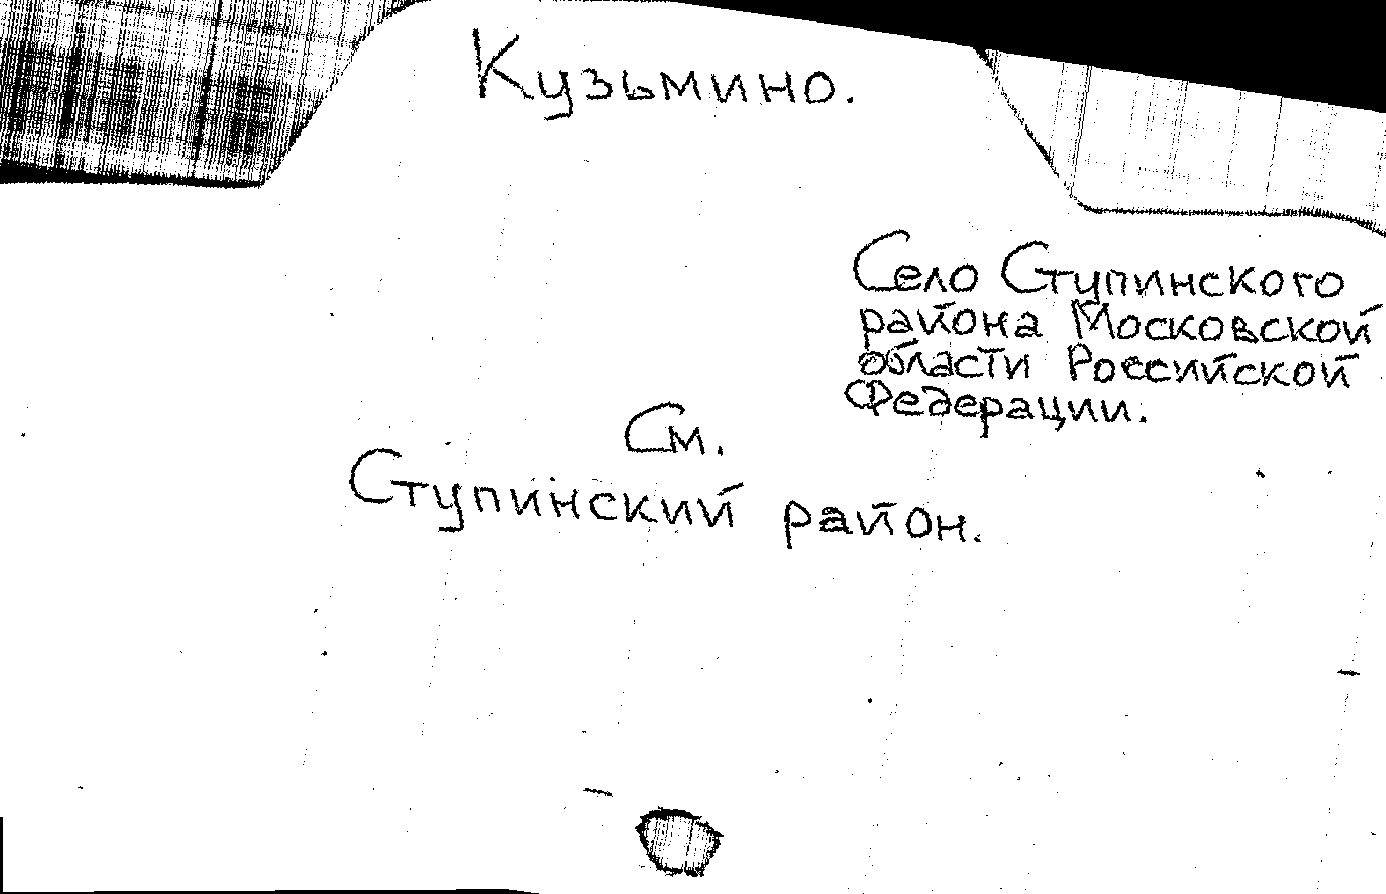 Кузьмино.
Село Ступинского
района Московской
области Российской
Федерации.
См.
Ступинский район.